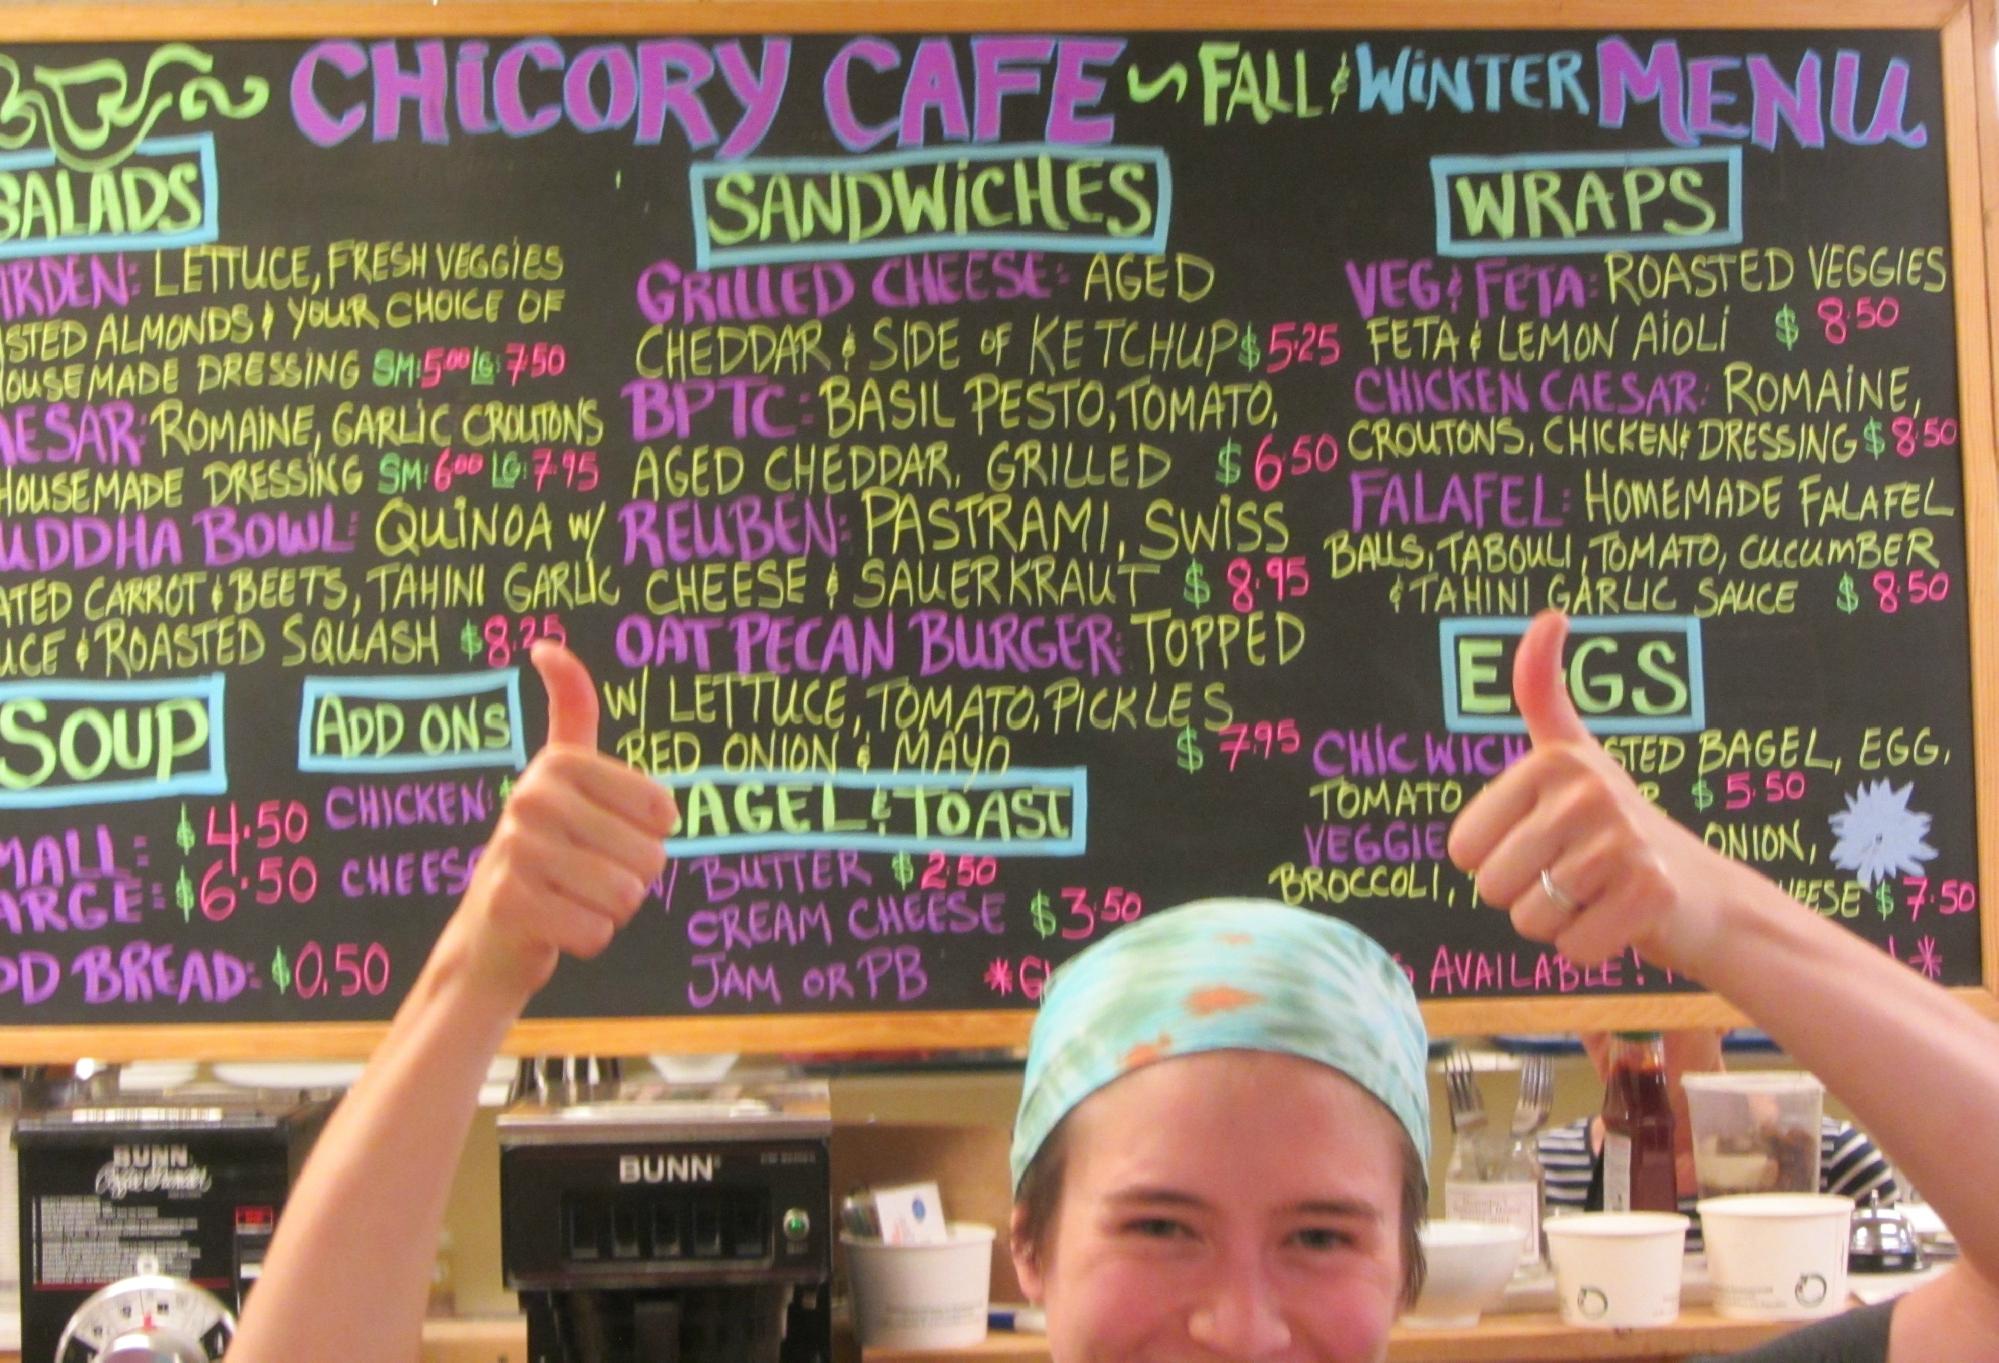 CHICORY CAFE ~ FALL & WINTER MENU
SALADS
LETTUCE, FRESH VEGGIES
ALMONDS & YOUR CHOICE OF
HOUSEMADE DRESSING SM: 5.00 LG: 7.50
CAESAR: ROMAINE, GARLIC CROUTONS
HOUSEMADE DRESSING SM: 6.00 LG: 7.95
BUDDHA BOWL: QUINOA W/
CARROT & BEETS, TAHINI GARLIC
& ROASTED SQUASH $8.25
SOUP
SMALL: $4.50
LARGE: $6.50
BREAD: $0.50
ADD ONS
CHICKEN: $
CHEESE
SANDWICHES
GRILLED CHEESE: AGED
CHEDDAR & SIDE OF KETCHUP $5.25
BPTC: BASIL PESTO, TOMATO,
AGED CHEDDAR, GRILLED $6.50
REUBEN: PASTRAMI, SWISS
CHEESE & SAUERKRAUT $8.95
OAT PECAN BURGER: TOPPED
W/ LETTUCE, TOMATO, PICKLES
RED ONION & MAYO $7.95
BAGEL & TOAST
W/ BUTTER $2.50
CREAM CHEESE $3.50
JAM OR PB
WRAPS
VEG & FETA: ROASTED VEGGIES
FETA & LEMON AIOLI $8.50
CHICKEN CAESAR: ROMAINE,
CROUTONS, CHICKEN & DRESSING $8.50
FALAFEL: HOMEMADE FALAFEL
BALLS, TABOULI, TOMATO, CUCUMBER
& TAHINI GARLIC SAUCE $8.50
EGGS
CHIC WICH BAGEL, EGG,
TOMATO $5.50
VEGGIE ONION,
BROCCOLI, CHEESE $7.50
AVAILABLE!
BUNN
BUNN